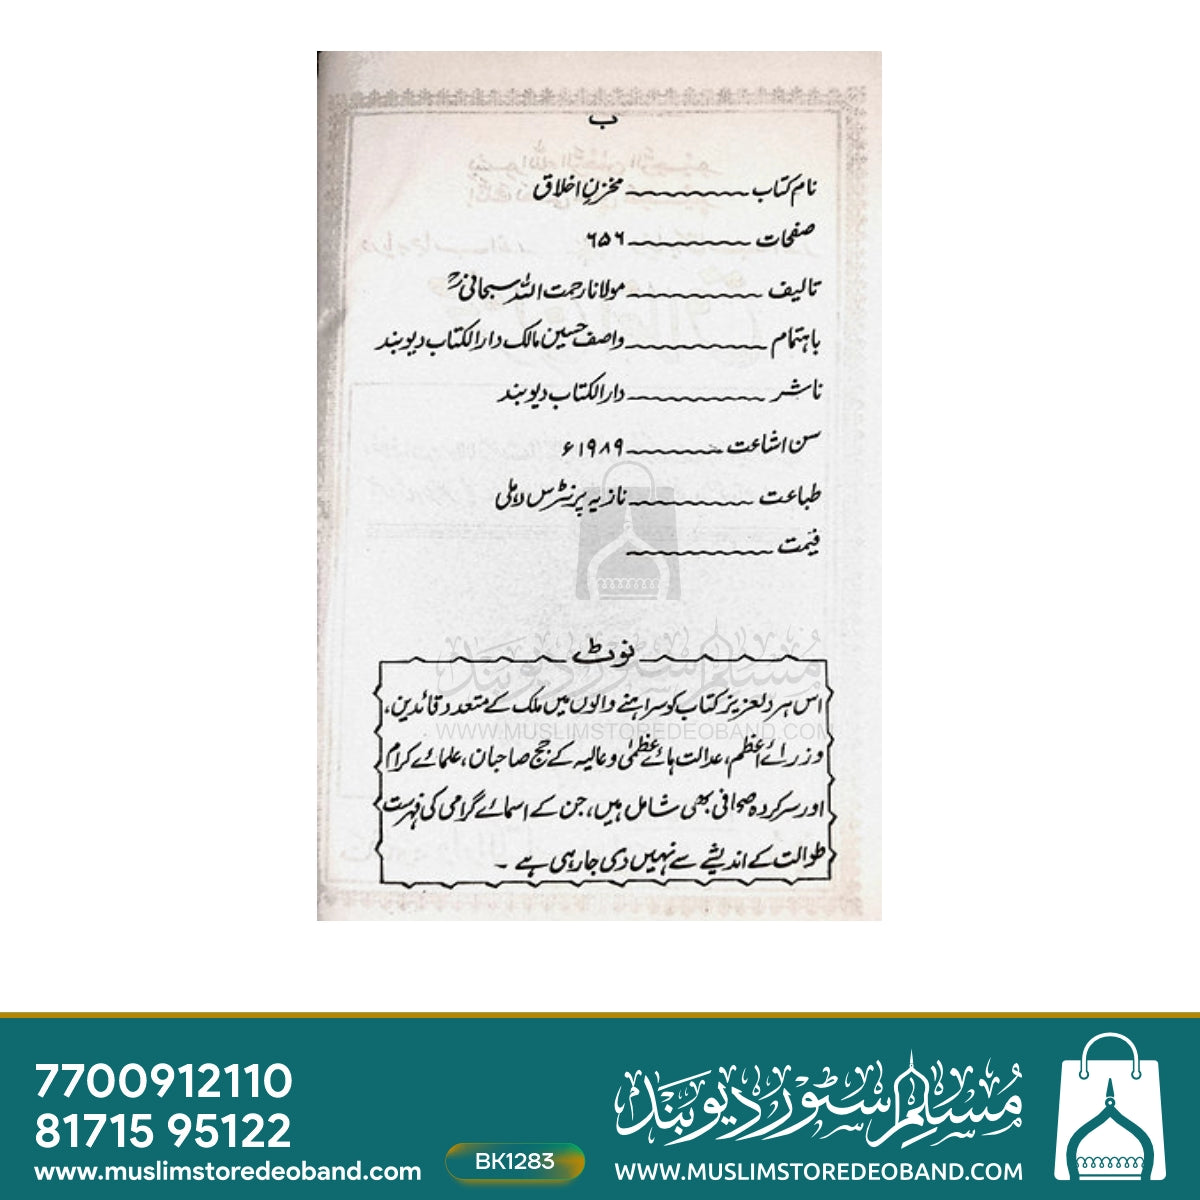 ب
نام کتاب ــــــــ مخزنِ اخلاق
صفحات ــــــــ ۶۵۶
تالیف ــــــــ مولانا رحمت اللہ سبحانیؒ
باہتمام ــــــــ واصف حسین مالک دارالکتاب دیوبند
ناشر ــــــــ دارالکتاب دیوبند
سن اشاعت ــــــــ ۱۹۸۹ء
طباعت ــــــــ نازیہ پرنٹرس دہلی
قیمت ــــــــ
نوٹ
اس ہردلعزیز کتاب کو سراہنے والوں میں ملک کے متعدد قائدین،
وزرائے اعظم، عدالت ہائے عظمیٰ و عالیہ کے جج صاحبان، علمائے کرام
اور سرکردہ صحافی بھی شامل ہیں، جن کے اسمائے گرامی کی فہرست
طوالت کے اندیشے سے نہیں دی جارہی ہے ۔
مسلم سٹور دیوبند
WWW.MUSLIMSTOREDEOBAND.COM
7700912110
81715 95122
www.muslimstoredeoband.com
BK1283
مُسلِم سٹور دیوبند
WWW.MUSLIMSTOREDEOBAND.COM